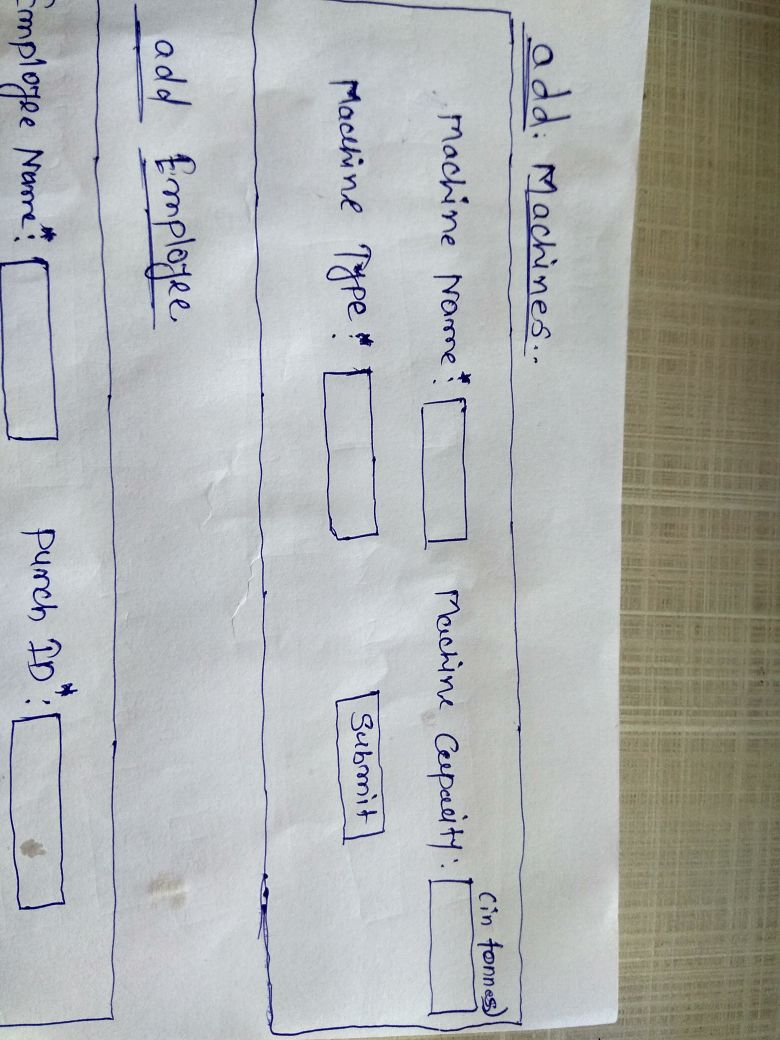 add: Machines..
(in tonnes)
Machine Name:* Machine Capacity:
Machine Type:* Submit
add Employee.
Employee Name*: Punch ID*: